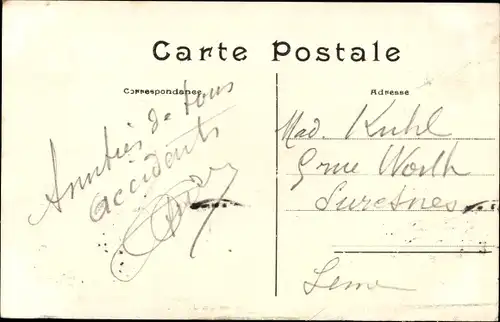 Carte Postale
Correspondance
Adresse
de tous
accidents
Mad. Kuhl
9 rue Worth
Suresnes
Seine